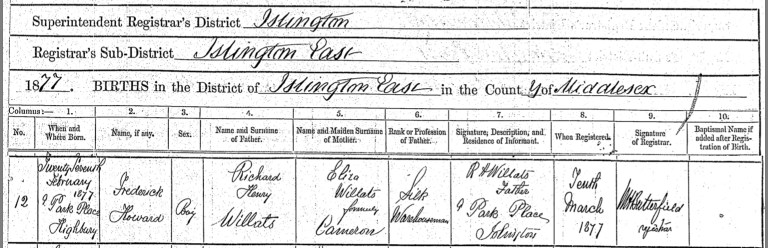 Superintendent Registrar's District Islington
Registrar's Sub-District Islington East
1877. BIRTHS in the District of Islington East in the County of Middlesex
Columns:— 1. 2. 3. 4. 5. 6. 7. 8. 9. 10.
No. When and Where Born. Name, if any. Sex. Name and Surname of Father. Name and Maiden Surname of Mother. Rank or Profession of Father. Signature, Description, and Residence of Informant. When Registered. Signature of Registrar. Baptismal Name if added after Registration of Birth.
12
Twenty Seventh
February
1877
9 Park Place
Highbury
Frederick
Howard
Boy
Richard
Henry
Willats
Eliza
Willats
formerly
Cameron
Silk
Warehouseman
R H Willats
Father
9 Park Place
Islington
Tenth
March
1877
Butterfield
registrar